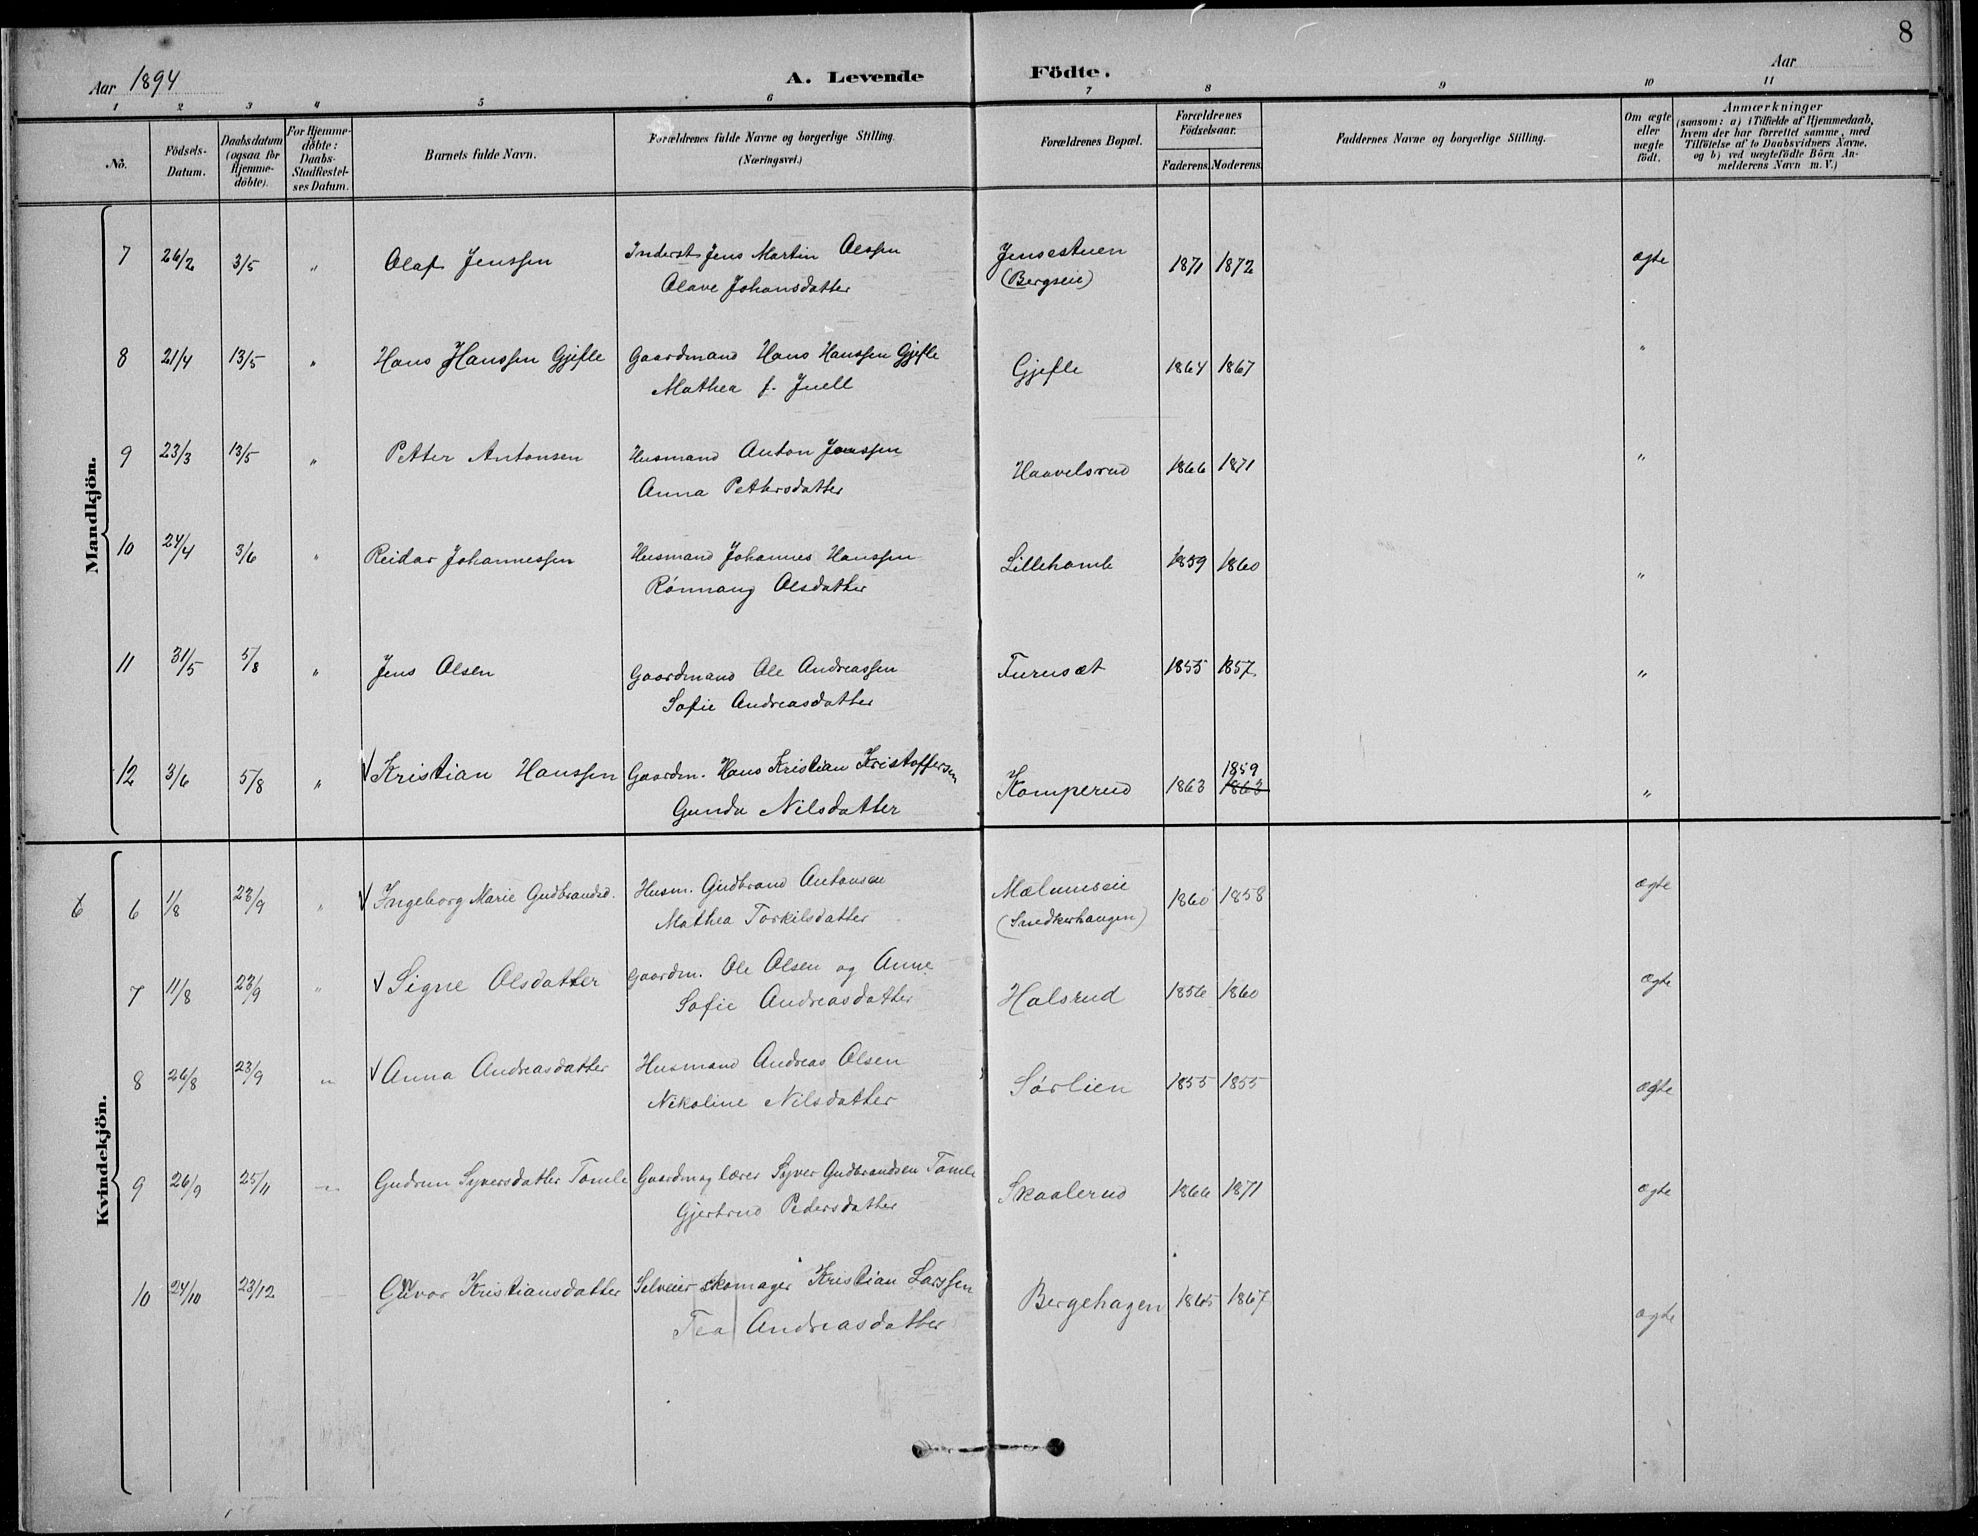 8
Aar 1894 A. Levende Födte. Aar
1 2 3 4 5 6 7 8 9 10 11
No. Födsels-Datum. Daabsdatum (ogsaa for Hjemme-döbte). For Hjemme-döbte: Daabs-Stadfæstel-ses Datum. Barnets fulde Navn. Forældrenes fulde Navne og borgerlige Stilling. (Næringsvei.) Forældrenes Bopæl. Forældrenes Födselsaar. Faderens. Moderens. Faddernes Navne og borgerlige Stilling. Om ægte eller uægte födt. Anmærkninger (saasom: a) i Tilfælde af Hjemmedaab, hvem der har forrettet samme, med Tilföielse af to Daabsvidners Navne, og b) ved uægtefödte Börn An-melderens Navn m. V.)
Mandkjön.
7 26/2 3/5 " Olaf Jenssen Inderst Jens Martin Olssen Jensestuen 1871 1872 ægte
Olave Johansdatter (Bergseie)
8 21/4 13/5 " Hans Hanssen Gjefle Gaardmand Hans Hanssen Gjefle Gjefle 1864 1867 "
Mathea f. Juell
9 23/3 13/5 " Petter Antonsen Husmand Anton Jonssen Haavelsrud 1866 1871 "
Anna Pettersdatter
10 24/4 3/6 " Reidar Johannessen Husmand Johannes Hanssen Lillehamle 1859 1860 "
Rønnaug Olsdatter
11 31/5 5/8 " Jens Olsen Gaardmand Ole Andreassen Furusæt 1855 1857 "
Sofie Andreasdatter
12 3/6 5/8 " √ Kristian Hanssen Gaardm. Hans Kristian Kristoffersen Kamperud 1863 1859 1863 "
Gunda Nilsdatter
Kvindekjön.
6 6 1/8 23/9 " √ Ingeborg Marie Gudbrandsd. Husm. Gudbrand Antonsen Mælumseie 1860 1858 ægte
Mathea Torkilsdatter (Snedkerhaugen)
7 11/8 23/9 " √ Signe Olsdatter Gaardm. Ole Olsen og Anne Halsrud 1856 1860 ægte
Sofie Andreasdatter
8 26/8 23/9 " √ Anna Andreasdatter Husmand Andreas Olsen Sørlien 1855 1855 ægte
Nikoline Nilsdatter
9 26/9 25/11 " Gudrun Syversdatter Tomle Gaardm og lærer Syver Gudbrandsen Tomle Skaalerud 1866 1871 ægte
Gjertrud Pedersdatter
10 24/10 23/12 Gunvor Kristiansdatter Selveier skomager Kristian Larssen Bergehagen 1865 1867 ægte
Tea Andreasdatter